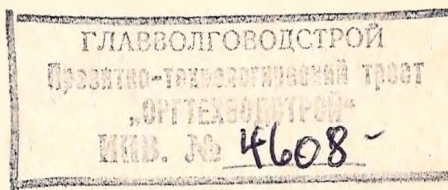 ГЛАВВОЛГОВОДСТРОЙ
Проектно-технологический трест
„ОРГТЕХВОДСТРОЙ“
ИНВ. № 4608-